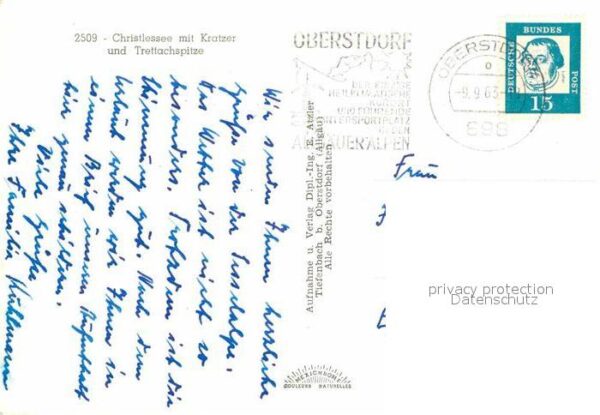 2509 - Christlessee mit Kratzer
und Trettachspitze
OBERSTDORF
HEILKLIMATISCHER
KURORT
WINTERSPORTPLATZ
IN DEN
ALLGÄUER ALPEN
OBERSTDORF
-9.9.63-
DEUTSCHE
BUNDES
POST
15
Frau
Wir senden Ihnen herzliche
Grüße von der
Das Wetter ist nicht so
besonders. Trotzdem ist die
Stimmung gut. Nach dem
Urlaub werden wir Ihnen in
einem Brief unseren Aufenthalt
hier genau schildern.
Viele Grüße
Ihre Familie Kuhlmann
Aufnahme u. Verlag Dipl.-Ing. H. Atzler
Tiefenbach b. Oberstdorf (Allgäu)
Alle Rechte vorbehalten.
MEXICHROME
COULEURS NATURELLES
privacy protection
Datenschutz